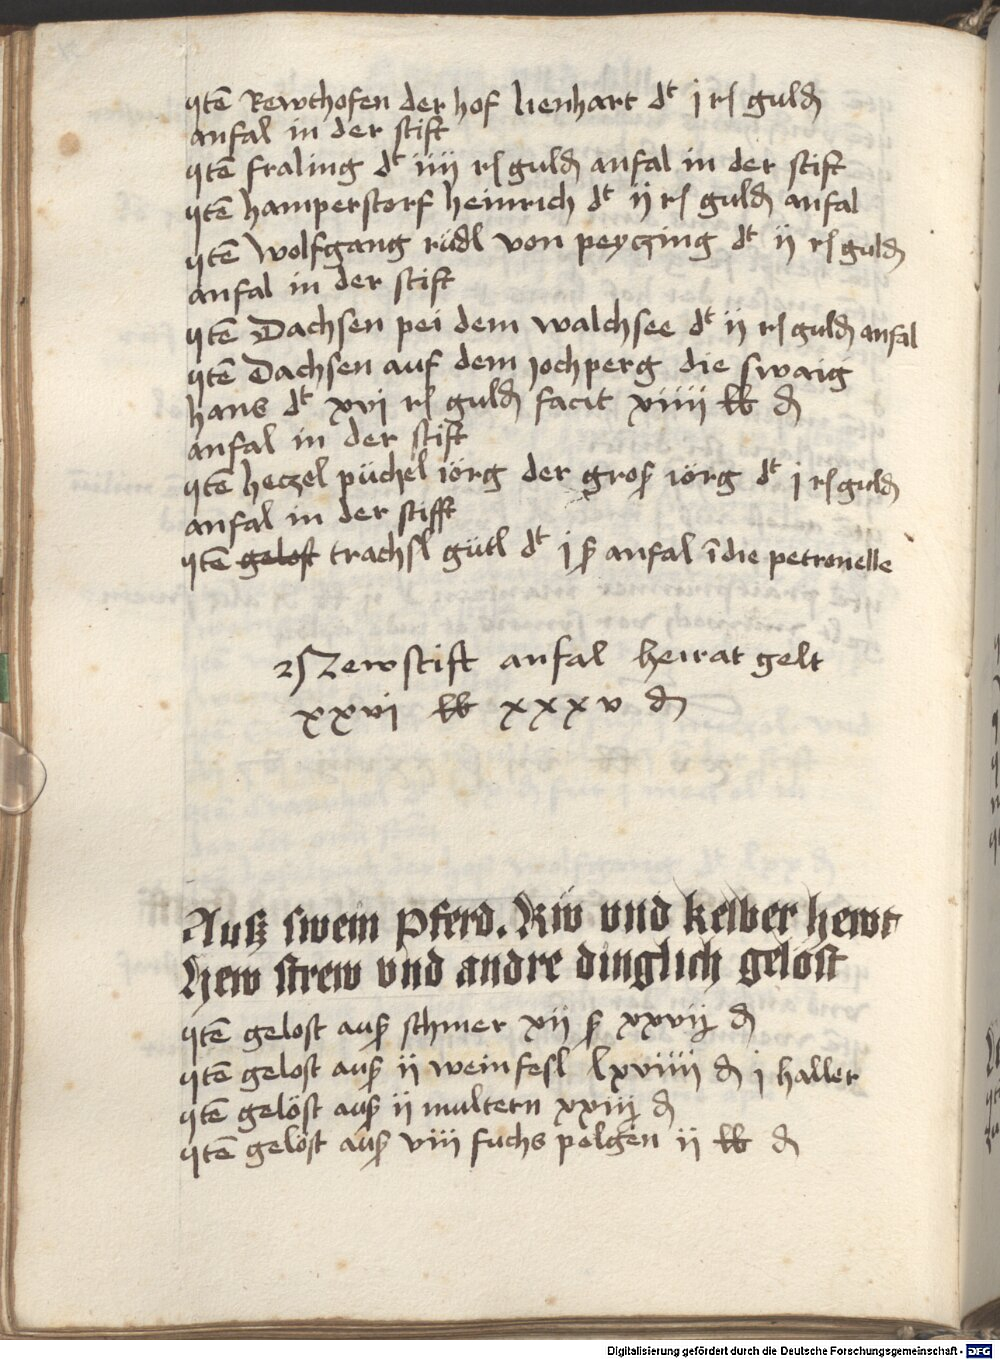 Itē Rewthofen der hof lienhart dt j rh guld
anfal in der stift
Itē fraling dt iiij rh guld anfal in der stift
Itē hamperstorf heinrich dt ij rh guld anfal
Itē wolfgang rüdl von peyczing dt ij rh guld
anfal in der stift
Itē Dachsen pei dem walchsee dt ij rh guld anfal
Itē Dachsen auf dem jochperg die swaig
hans dt xvi rh guld facit xiiij lb d
anfal in der stift
Itē heczel püchel iörg der gros iörg dt j rh guld
anfal in der stifft
Itē gelost trachsl gütl dt j ß anfal ī die petronelle
Newstift anfal heirat gelt
xxvi lb xxxv d
Auß swein Pferd. Kiw vnd kelber hewt
hew strew vnd andre dinglich gelöst
Itē gelost auß schmer xij ß xxvij d
Itē gelost auß ij weinfesl lxviiij d j haller
Itē gelöst auß ij multern xxiij d
Itē gelöst auß viii fuchs pelgen ij lb d
Digitalisierung gefördert durch die Deutsche Forschungsgemeinschaft - DFG